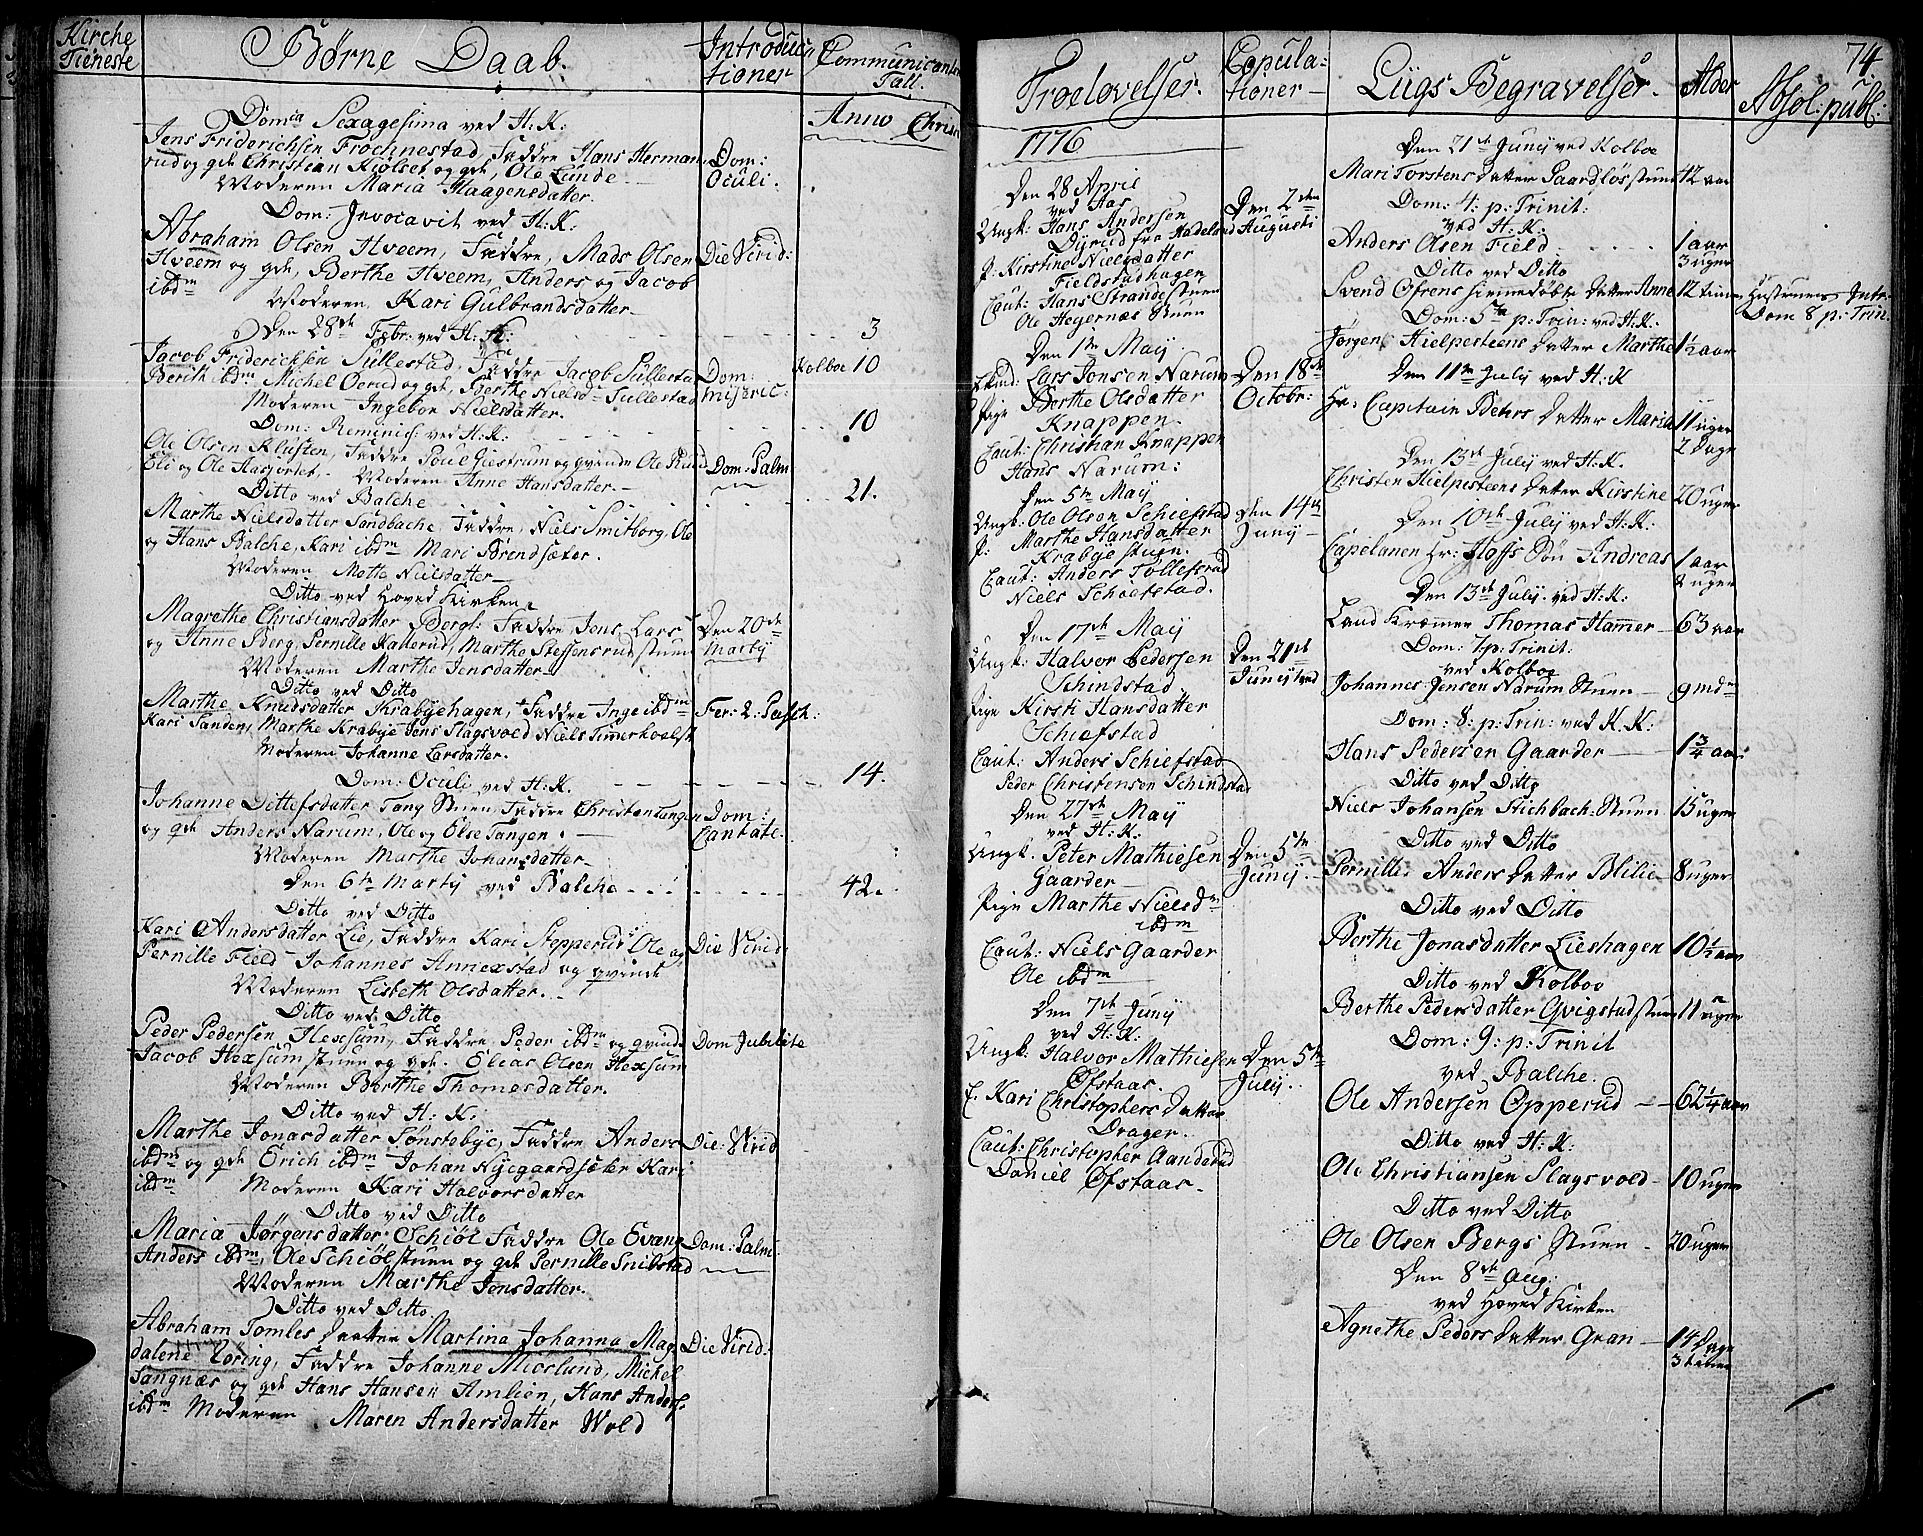 Kirche
Tieneste
Børne Daab.
Introduc
tioner
Communicanter
Tall.
Anno Christi
Domca Sexagesima ved H: K:
Jens Friderichsen Frochnestad, Faddre Hans Herman
rud og gde Christian Kiølset og gde, Ole Lunde
Moderen Maria Haagensdatter.
Dom:
Oculi.
Dom: Invocavit ved H: K:
Abraham Olsen Hveem, Faddre, Mads Olsen
Hveem og gde, Berthe Hveem, Anders og Jacob
ibdm
Moderen Kari Gulbrandsdatter
Die Virid:
Den 28de Febr: ved H: K: 3
Jacob Friderichsen Sullestad, Faddre Jacob Sullestad
Berith ibdm Michel Oerud og gde, Berthe Nielsd Sullestad
Moderen Ingebor Nielsdatter.
Dom:
Miseric:
Kolboe 10
Dom: Reminisc: ved H: K: 10
Ole Olsen Klusten, Faddre Poul Giestrum og qvinde Ole Rud
Eli og Ole Aasjordet, Moderen Anne Hansdatter.
Dom: Palm
Ditto ved Balche 21.
Marthe Nielsdatter Sandbache, Faddre, Niels Smitborg, Ole
og Hans Balche, Kari ibdm Mari Børendsæter.
Moderen Mette Nielsdatter
Ditto ved Hoved Kirken
Magrethe Christiansdatter Berg: Faddre, Jens, Lars
og Anne Berg, Pernille Kallerud, Marthe Steffensrud stuen
Moderen Marthe Jensdatter
Den 20de
Martij
Ditto ved Ditto
Marthe Knudsdatter Krabyehagen, Faddre Inge ibdm
Kari Sanden, Marthe Krabye Jens Slagsvold Niels Timmerholst
Moderen Johanne Larsdatter.
Fer: 2. Pasch:
Dom: Oculi ved H: K. 14.
Johanne Dittlefsdatter Tang Stuen, Faddre Christen Tangen
og gde Anders Narum, Ole og Else Tangen.
Moderen Marthe Johansdatter
Dom:
Cantate.
Den 6te Martij ved Balche 42.
Ditto ved Ditto
Kari Andersdatter Lie, Faddre Kari Stepperud, Ole og
Pernille Field Johannes Annexstad og qvinde
Moderen Lisbeth Olsdatter.
Die Virid
Ditto ved Ditto
Peder Pedersen Hexsum, Faddre, Peder ibdm og qvinde
Jacob Hexsum stuen og gde. Elias Olsen Hexsum
Moderen Berthe Thomesdatter.
Dom Jubilate
Ditto ved H: K:
Marthe Jonasdatter Sønstebye, Faddre Anders
ibdm og gde Erich ibdm Johan Nyegaardsæter Kari
ibdm Moderen Kari Halvorsdatter
Die: Virid
Ditto ved Ditto
Maria Jørgensdatter Schiøl Faddre Ole Evang
Anders ibdm, Ole Schiøl stuen og gde Pernille Snilstad
Moderen Marthe Jensdatter.
Dom: Palm
Ditto ved Ditto
Abraham Tomles Datter Martina Johanna Mag
dalene Loring, Faddre Johanne Miorlund, Michel
Sangnæs og gde Hans Hansen Amlien, Hans Anders:
ibdm Moderen Maren Andersdatter Wold
Die Virid:
74
Troelovelser.
Copula:
tioner
Liigs Begravelser.
Alder
Absol: publ:
1776
Den 28 April
ved Aas
Ungk: Hans Andersen
Dyrud fra Hadeland
P: Kirstine Nielsdatter
Fieldstadhagen
Caut: Hans Strande stuen
Ole Hegernæs Stuen
Den 2den
Augusti
Den 1te Maij
Enkd: Lars Jonsen Narum
Pige Berthe Olsdatter
Knappen
Caut: Christian Knappen
Hans Narum:
Den 18de
Octobr:
Den 5te Maij
Ungk: Ole Olsen Schiefstad
P: Marthe Hansdatter
Krabye stuen.
Caut: Anders Tollefsrud
Niels Schiefstad.
Den 14de
Junij
Den 17de Maij
Ungk: Halvor Pedersen
Schindstad
Pige Kirsti Hansdatter
Schiefstad
Caut: Anders Schiefstad
Peder Christensen Schindstad
Den 21de
Junij
Den 27de Maij
ved H: K.
Ungk. Peter Mathiesen
Gaarder
Pige Marthe Nielsdr
ibdm
Caut: Niels Gaarder
Ole ibdm
Den 5te
Junij
Den 7de Junij
ved H: K:
Ungk: Halvor Mathiesen
Øfstaas.
E. Kari Christophers datter
Drager.
Caut: Christopher Aanderud
Daniel Øfstaas.
Den 5te
Julij.
Den 21de Junij ved Kolboe
Mari Torstens datter Paardløsstuen 42 aar
Dom: 4: p: Trinit:
ved H: K:
Anders Olsen Field 1 aar
3 uger
Ditto ved Ditto
Svend Ofrens hiemmedøbte datter Anne 12 timer Hustruens Intr:
Dom 8 p: Trin:
Dom: 5te p: Trin: ved H: K.
Jørgen Hielpesteens datter Marthe 1½ aar
Den 11te Julij ved H: K
Hr: Capitain Behrs datter Maria 11 uger
2 Dage
Den 13de Julij ved H: K.
Christen Hielpesteens datter Kirstine 20 uger
Den 10de Julij ved H: K:
Capelanen Hr: Hoffs Søn Andreas 1 aar
2 uger
Den 13de Julij ved H: K:
Land Kræmer Thomas Hamer 63 aar
Dom: 7 p: Trinit:
ved Kolboe
Johannes Jensen Narum Stuen 9 mdr
Dom: 8: p: Trin: ved H. K:
Hans Pedersen Gaarder 1¾ aar
Ditto ved Ditto
Niels Johansen Stichbach: Stuen 15 uger
Ditto ved Ditto
Pernille Anders datter Blilie 8 uger
Ditto ved Ditto
Berthe Jonasdatter Lieshagen 10½ aar
Ditto ved Kolboe
Berthe Pedersdatter Qvigstadstuen 11 uger
Dom: 9: p: Trinit
ved Balche.
Ole Andersen Opperud 62¼ aar
Ditto ved H: K:
Ole Christiansen Slagsvold 10 uger
Ditto ved Ditto
Ole Olsen Bergs Stuen 20 uger
Den 8de Aug:
ved Hoved Kirken
Agnethe Peders datter Gran 14 Dage
3 timer